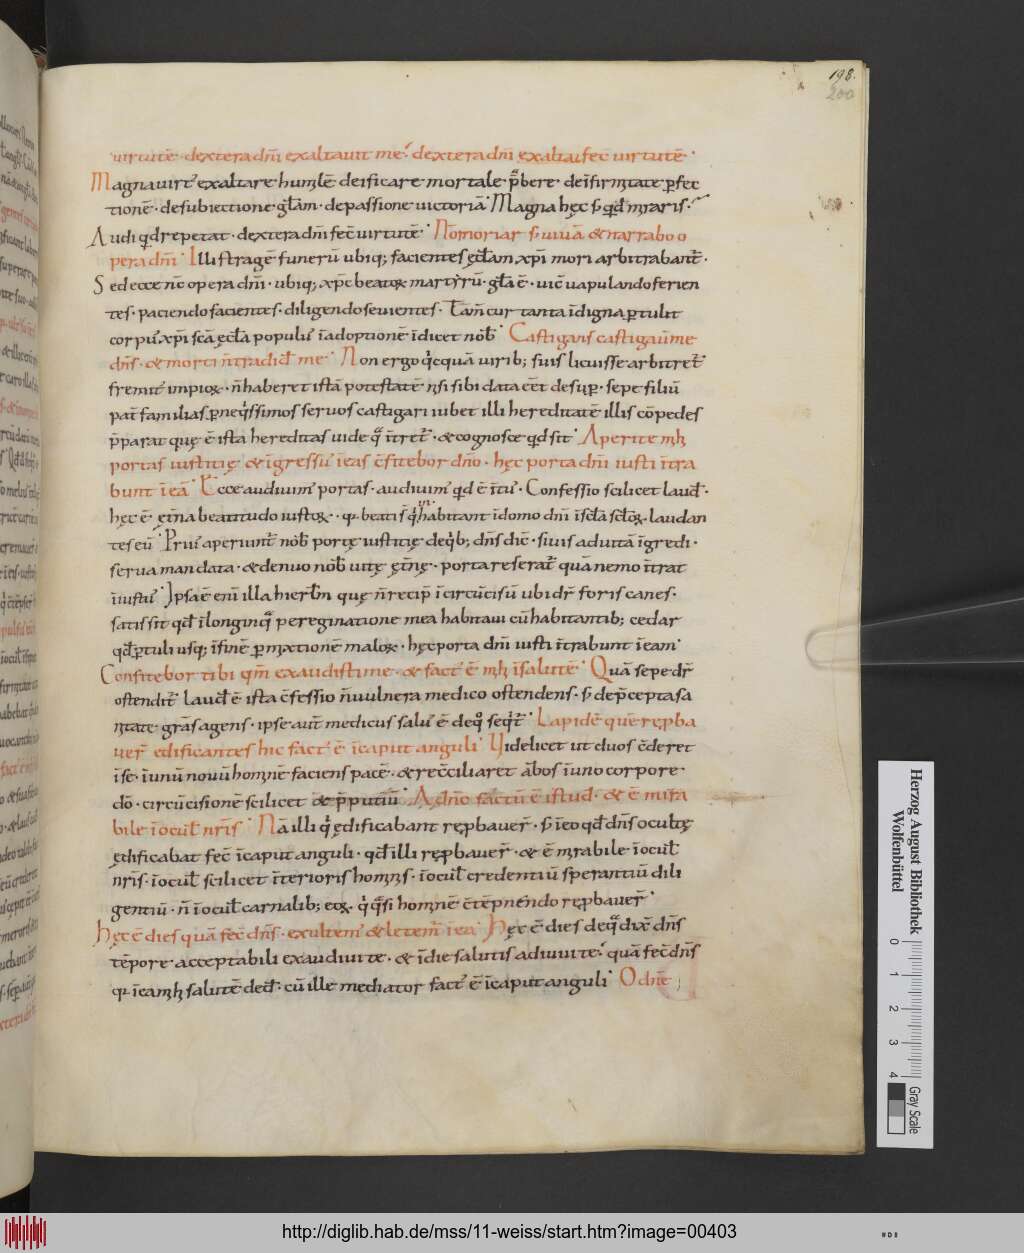 198.
200
uirtutē · dextera dn̄i exaltauit me · dextera dn̄i exaltaui fec̄ uirtutē ·
Magna uirt᷒ exaltare humilē deificare mortale p̄bere · de īfirmitate ꝑfec
tionē · de subiectione gl̄am · de passione uictoriā · Magna hęc s; qd̄ miraris ·
Audi qd̄ repetat · dextera dn̄i fec̄ uirtutē · Non moriar s; uiuā & narrabo o
pera dn̄i · Illi stragē funerū ubiq; facientes ęcl̄am xp̄i mori arbitrabant̄ ·
Sed ecce nc̄ opera dn̄i · ubiq; xp̄c beatoꝝ martyrū · gl̄a ē · uic̄ uapulando ferien
tes · paciendo facientes · diligendo seuientes · Tam̄ cur tanta īdigna ꝑtulit
corpus xp̄i sc̄a ęcl̄a populus īadoptionē īdicet nob̄ · Castigans castigauit me
dn̄s · & morti n̄ tradid̄ me · Non ergo qicquā uirib; suis licuisse arbitret̄
fremit᷒ impioꝝ · n̄ haberet istā potestatē nisi sibi data ee͞t desuꝑ · sepe filiū
pat̄ familias ꝑ neqissimos seruos castigari iubet illi hereditatē illis cōpedes
p̄parat quę ē ista hereditas uide qō ītret̄ · & cognosce qd̄ sit · Aperite mihi
portas iustitię & īgressus ī eas c̄fitebor dn̄o · hęc porta dn̄i iusti ītra
bunt ī eā · Ecce audiuim᷒ portas · audiuim᷒ qd̄ ē īt᷒ · Confessio scilicet laud̄ ·
hęc ē · ęt̄na beatitudo iustoꝝ · qꝛ beati s̄ qi habitant in domo dn̄i ī scl̄a scl̄oꝝ · laudan
tes eū · Prius aperiunt̄ nob̄ portę iustitię de qib; dn̄s dic̄ · si uis ad uitā īgredi ·
serua mandata · & denuo nob̄ uitę ęt̄nę · porta reserat̄ quā nemo ītrat
iniustus · Ipsa ē enī illa hierl̄m quę n̄ recip̄ īcircūcisū ubi dr̄ foris canes ·
satis sit qd̄ ī longinqo peregrinatione mea habitaui cū habitantib; cedar
qd̄ ꝑtuli usq; ī finē ꝑmixtionē maloꝝ · hęc porta dn̄i iusti ītrabunt ī eam ·
Confitebor tibi qm̄ exaudisti me · & fact᷒ ē mihi ī salutē · Quā sepe dr̄
ostendit̄ laud̄ ē ista c̄fessio n̄ uulnera medico ostendens · s; de p̄cepta sa
nitate gr̄as agens · ipse aut̄ medicus salus ē de qo seqt̄ · Lapidē quē rępba
uer̄ edificantes hic fact᷒ ē ī caput anguli · Uidelicet ut duos c̄deret
ī se · ī unū nouū hominē faciens pacē · & rec̄ciliaret ābos ī uno corpore
dō · circūcisionē scilicet & p̄putiū · A dn̄o factū ē istud · & ē mira
bile ī ocul̄ nr̄is · Nā illi qi ędificabant rępbauer̄ · s; īeo qd̄ dn̄s ocultę
ędificabat fec̄ ī caput anguli · qd̄ illi rępbauer̄ · & ē mirabile ī ocul̄
nr̄is · ī ocul̄ scilicet īterioris hominis · ī ocul̄ credentiū sperantiū dili
gentiū · n̄ ī ocul̄ carnalib; eoꝝ · qi qasi hominē c̄tēpnendo rępbauer̄ ·
Hęc ē dies quā fec̄ dn̄s · exultem᷒ & letem̄ in ea · Hęc ē dies de qo dix̄ dn̄s
tēpore acceptabili exaudiui te · & ī die salutis adiuui te · quā fec̄ dn̄s
qꝛ ī ea mihi salutē ded̄ · cū ille mediator fact᷒ ē ī caput anguli · O dn̄e
Herzog August Bibliothek
Wolfenbüttel
0 1 2 3 4
Gray Scale
http://diglib.hab.de/mss/11-weiss/start.htm?image=00403